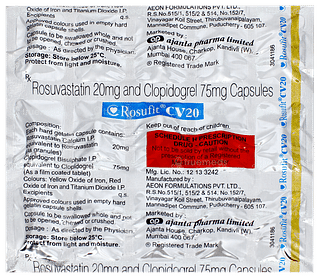 Oxide of Iron and Titanium Dioxide I.P.
Excipients q.s.
Approved colours used in empty hard
gelatin capsule shells.
Capsule to be swallowed whole and not
to be opened, chewed or crushed.
Dosage : As directed by the Physician.
Storage: Store below 25°C.
Protect from light and moisture.
AEON FORMULATIONS PVT. LTD.
R.S.No.515/1, 515/2 & 514, No.152/7,
Vinayagar Koil Street, Thirubuvanaipalayam,
Mannadipet Commune, Puducherry - 605 107.
Marketed by :
ajanta pharma limited
Ajanta House, Charkop, Kandivli (W)
Mumbai
® Registered Trade Mark
3041186
Rx
Rosuvastatin 20mg and Clopidogrel 75mg Capsules
Rosufit® CV20
Composition:
Each hard gelatin capsule contains:
Rosuvastatin Calcium I.P.
equivalent to Rosuvastatin 20mg
(As Granules)
Clopidogrel Bisulphate I.P.
equivalent to Clopidogrel 75mg
(As a film coated tablet)
Colours: Yellow Oxide of Iron, Red
Oxide of Iron and Titanium Dioxide I.P.
Excipients q.s.
Approved colours used in empty hard
gelatin capsule shells.
Capsule to be swallowed whole and not
to be opened, chewed or crushed.
Dosage : As directed by the Physician
Storage: Store below 25°C.
Protect from light and moisture.
Keep out of reach of children.
SCHEDULE H PRESCRIPTION
DRUG - CAUTION
truemeds
Mfg. Lic. No.: 12 13 3242
Manufactured by :
AEON FORMULATIONS PVT. LTD.
R.S.No.515/1, 515/2 & 514, No.152/7,
Vinayagar Koil Street, Thirubuvanaipalayam,
Mannadipet Commune, Puducherry - 605 107.
Marketed by :
ajanta pharma limited
Ajanta House, Charkop, Kandivli (W)
Mumbai
® Registered Trade Mark
3041186
Rx
Rosuvastatin 20mg and Clopidogrel 75mg Capsules